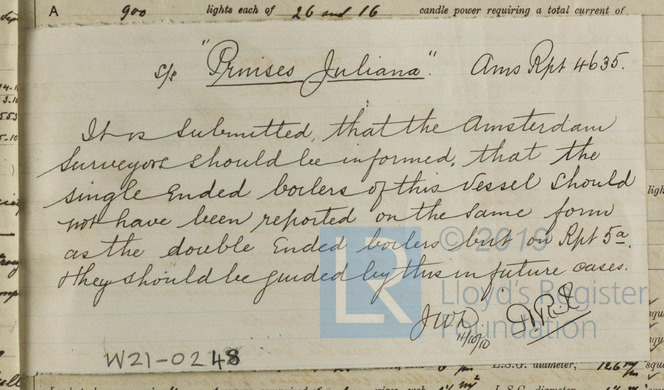 A 900 lights each of 26 and 16 candle power requiring a total current of
s/s "Prinses Juliana". Ams Rpt 4635.
It is submitted, that the Amsterdam
Surveyors should be informed, that the
single Ended boilers of this vessel should
not have been reported on the same form
as the double Ended boilers but on Rpt 5a.
& they should be guided by this in future cases.
JWD
11/10/10
© 2019
Lloyd's Register
Foundation
LR
W21-0248
L.S.G. diameter, 126 m/m